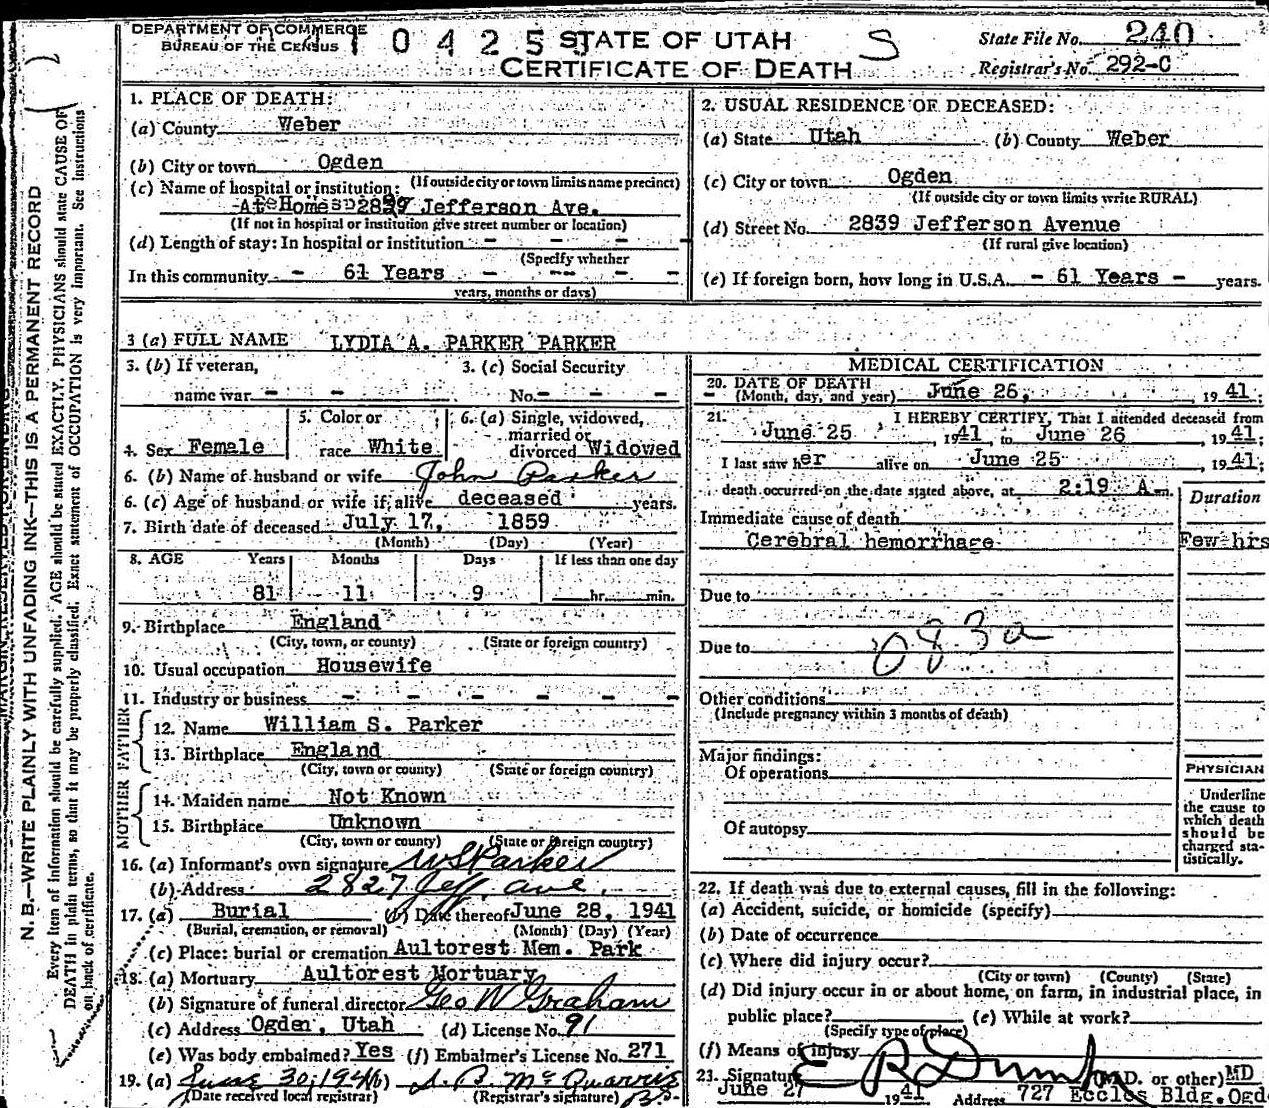 DEPARTMENT OF COMMERCE
BUREAU OF THE CENSUS
10425 STATE OF UTAH S
CERTIFICATE OF DEATH
State File No. 240
Registrar's No. 292-C
1. PLACE OF DEATH:
(a) County Weber
(b) City or town Ogden
(If outside city or town limits name precinct)
(c) Name of hospital or institution:
At Home 2839 Jefferson Ave.
(If not in hospital or institution give street number or location)
(d) Length of stay: In hospital or institution - - -
(Specify whether
In this community - 61 Years - -- - -
years, months or days)
2. USUAL RESIDENCE OF DECEASED:
(a) State Utah (b) County Weber
(c) City or town Ogden
(If outside city or town limits write RURAL)
(d) Street No. 2839 Jefferson Avenue
(If rural give location)
(e) If foreign born, how long in U.S.A. - 61 Years - years.
3 (a) FULL NAME LYDIA A. PARKER PARKER
3. (b) If veteran, 3. (c) Social Security
name war - - - No. - - -
4. Sex Female
5. Color or
race White
6. (a) Single, widowed,
married or
divorced Widowed
6. (b) Name of husband or wife John Parker
6. (c) Age of husband or wife if alive deceased years.
7. Birth date of deceased July 17, 1859
(Month) (Day) (Year)
8. AGE Years Months Days If less than one day
81 11 9 hr. min.
9. Birthplace England
(City, town, or county) (State or foreign country)
10. Usual occupation Housewife
11. Industry or business - - - - - -
FATHER
12. Name William S. Parker
13. Birthplace England
(City, town or county) (State or foreign country)
MOTHER
14. Maiden name Not Known
15. Birthplace Unknown
(City, town or county) (State or foreign country)
16. (a) Informant's own signature W S Parker
(b) Address 2827 Jeff. Ave.
17. (a) Burial (b) Date thereof June 28, 1941
(Burial, cremation, or removal) (Month) (Day) (Year)
(c) Place: burial or cremation Aultorest Mem. Park
18. (a) Mortuary Aultorest Mortuary
(b) Signature of funeral director Geo W Graham
(c) Address Ogden, Utah (d) License No. 91
(e) Was body embalmed? Yes (f) Embalmer's License No. 271
19. (a) June 30, 1941 (b)
(Date received local registrar) (Registrar's signature)
MEDICAL CERTIFICATION
20. DATE OF DEATH
(Month, day, and year) June 26, 1941;
21. I HEREBY CERTIFY, That I attended deceased from
June 25, 1941, to June 26, 1941;
I last saw her alive on June 25, 1941;
death occurred on the date stated above, at 2:19 A m.
Duration
Immediate cause of death
Cerebral hemorrhage Few hrs
Due to
083a
Due to
Other conditions
(Include pregnancy within 3 months of death)
Major findings:
Of operations
Of autopsy
PHYSICIAN
Underline
the cause to
which death
should be
charged sta-
tistically.
22. If death was due to external causes, fill in the following:
(a) Accident, suicide, or homicide (specify)
(b) Date of occurrence
(c) Where did injury occur?
(City or town) (County) (State)
(d) Did injury occur in or about home, on farm, in industrial place, in
public place? (e) While at work?
(Specify type of place)
(f) Means of injury
23. Signature E R Dumke (M.D. or other) MD
June 27 1941 Address 727 Eccles Bldg. Ogd
N. B.—WRITE PLAINLY WITH UNFADING INK—THIS IS A PERMANENT RECORD
Every item of information should be carefully supplied. AGE should be stated EXACTLY. PHYSICIANS should state CAUSE OF
DEATH in plain terms, so that it may be properly classified. Exact statement of OCCUPATION is very important. See instructions
on back of certificate.